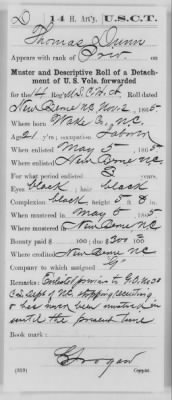 D 14 H. Art'y. U.S.C.T.
Thomas Dunn
Appears with rank of Priv. on
Muster and Descriptive Roll of a Detach-
ment of U. S. Vols. forwarded
for the 14 Reg't U.S.C.H.A. Roll dated
New Berne N.C. June 2, 1865.
Where born Wake Co, N.C.
Age 21 y'rs; occupation Laborer
When enlisted May 5, 1865.
Where enlisted New Berne N.C.
For what period enlisted 3 years.
Eyes black; hair black
Complexion black; height 5 ft. 8 in.
When mustered in May 5, 1865.
Where mustered in New Berne N.C.
Bounty paid $ 100; due $ 300 100
Where credited New Berne N.C.
Company to which assigned G
Remarks: Enlisted previous to G.O. No 30
Dept of N.C. stopping recruiting
& has not been mustered in
until the present time
Book mark:
Grogan
(339) Copyist.